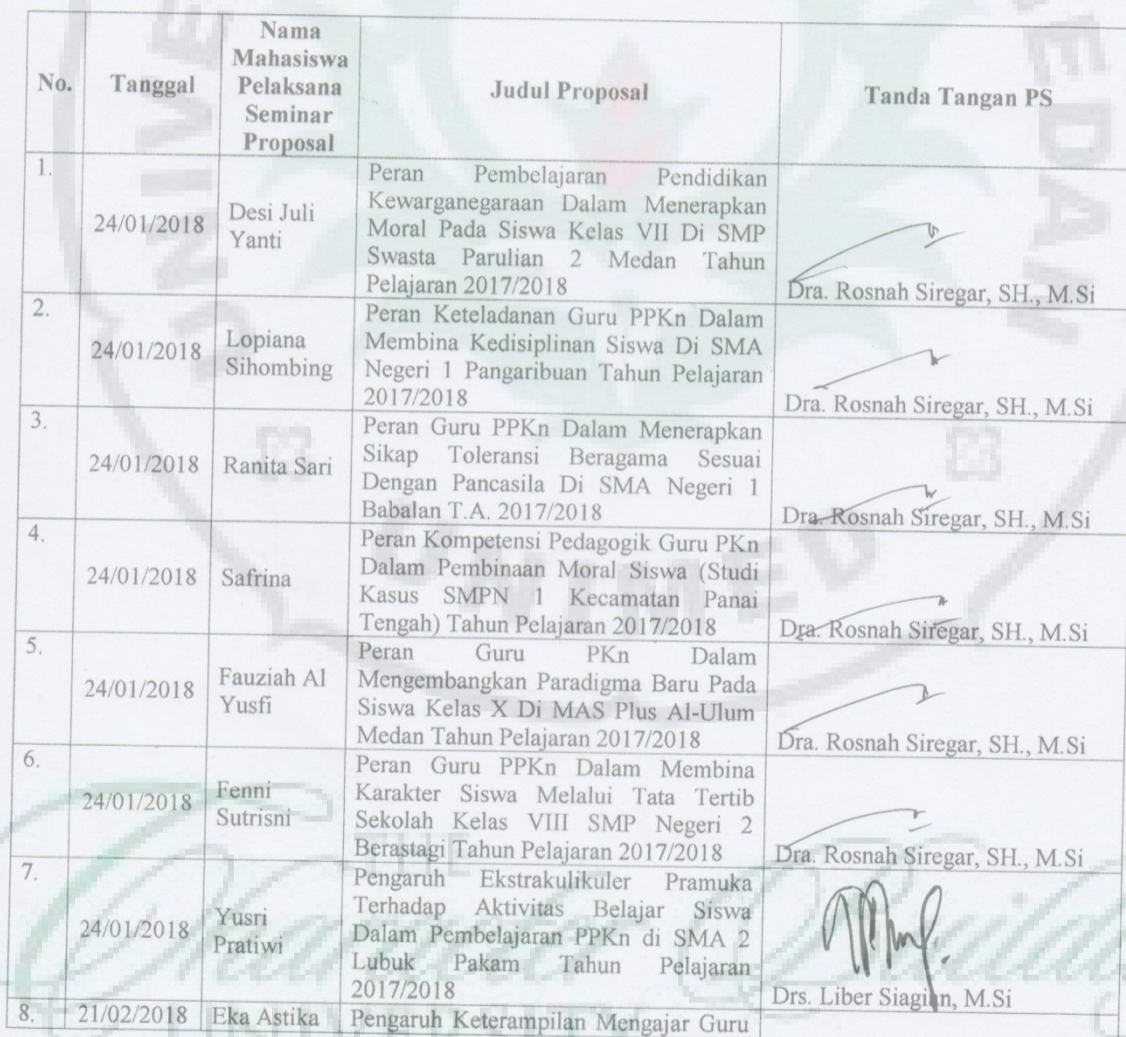 No.
Tanggal
Nama
Mahasiswa
Pelaksana
Seminar
Proposal
Judul Proposal
Tanda Tangan PS
1.
24/01/2018
Desi Juli
Yanti
Peran Pembelajaran Pendidikan
Kewarganegaraan Dalam Menerapkan
Moral Pada Siswa Kelas VII Di SMP
Swasta Parulian 2 Medan Tahun
Pelajaran 2017/2018
Dra. Rosnah Siregar, SH., M.Si
2.
24/01/2018
Lopiana
Sihombing
Peran Keteladanan Guru PPKn Dalam
Membina Kedisiplinan Siswa Di SMA
Negeri 1 Pangaribuan Tahun Pelajaran
2017/2018
Dra. Rosnah Siregar, SH., M.Si
3.
24/01/2018
Ranita Sari
Peran Guru PPKn Dalam Menerapkan
Sikap Toleransi Beragama Sesuai
Dengan Pancasila Di SMA Negeri 1
Babalan T.A. 2017/2018
Dra. Rosnah Siregar, SH., M.Si
4.
24/01/2018
Safrina
Peran Kompetensi Pedagogik Guru PKn
Dalam Pembinaan Moral Siswa (Studi
Kasus SMPN 1 Kecamatan Panai
Tengah) Tahun Pelajaran 2017/2018
Dra. Rosnah Siregar, SH., M.Si
5.
24/01/2018
Fauziah Al
Yusfi
Peran Guru PKn Dalam
Mengembangkan Paradigma Baru Pada
Siswa Kelas X Di MAS Plus Al-Ulum
Medan Tahun Pelajaran 2017/2018
Dra. Rosnah Siregar, SH., M.Si
6.
24/01/2018
Fenni
Sutrisni
Peran Guru PPKn Dalam Membina
Karakter Siswa Melalui Tata Tertib
Sekolah Kelas VIII SMP Negeri 2
Berastagi Tahun Pelajaran 2017/2018
Dra. Rosnah Siregar, SH., M.Si
7.
24/01/2018
Yusri
Pratiwi
Pengaruh Ekstrakulikuler Pramuka
Terhadap Aktivitas Belajar Siswa
Dalam Pembelajaran PPKn di SMA 2
Lubuk Pakam Tahun Pelajaran
2017/2018
Drs. Liber Siagian, M.Si
8.
21/02/2018
Eka Astika
Pengaruh Keterampilan Mengajar Guru
UNIMED
THE